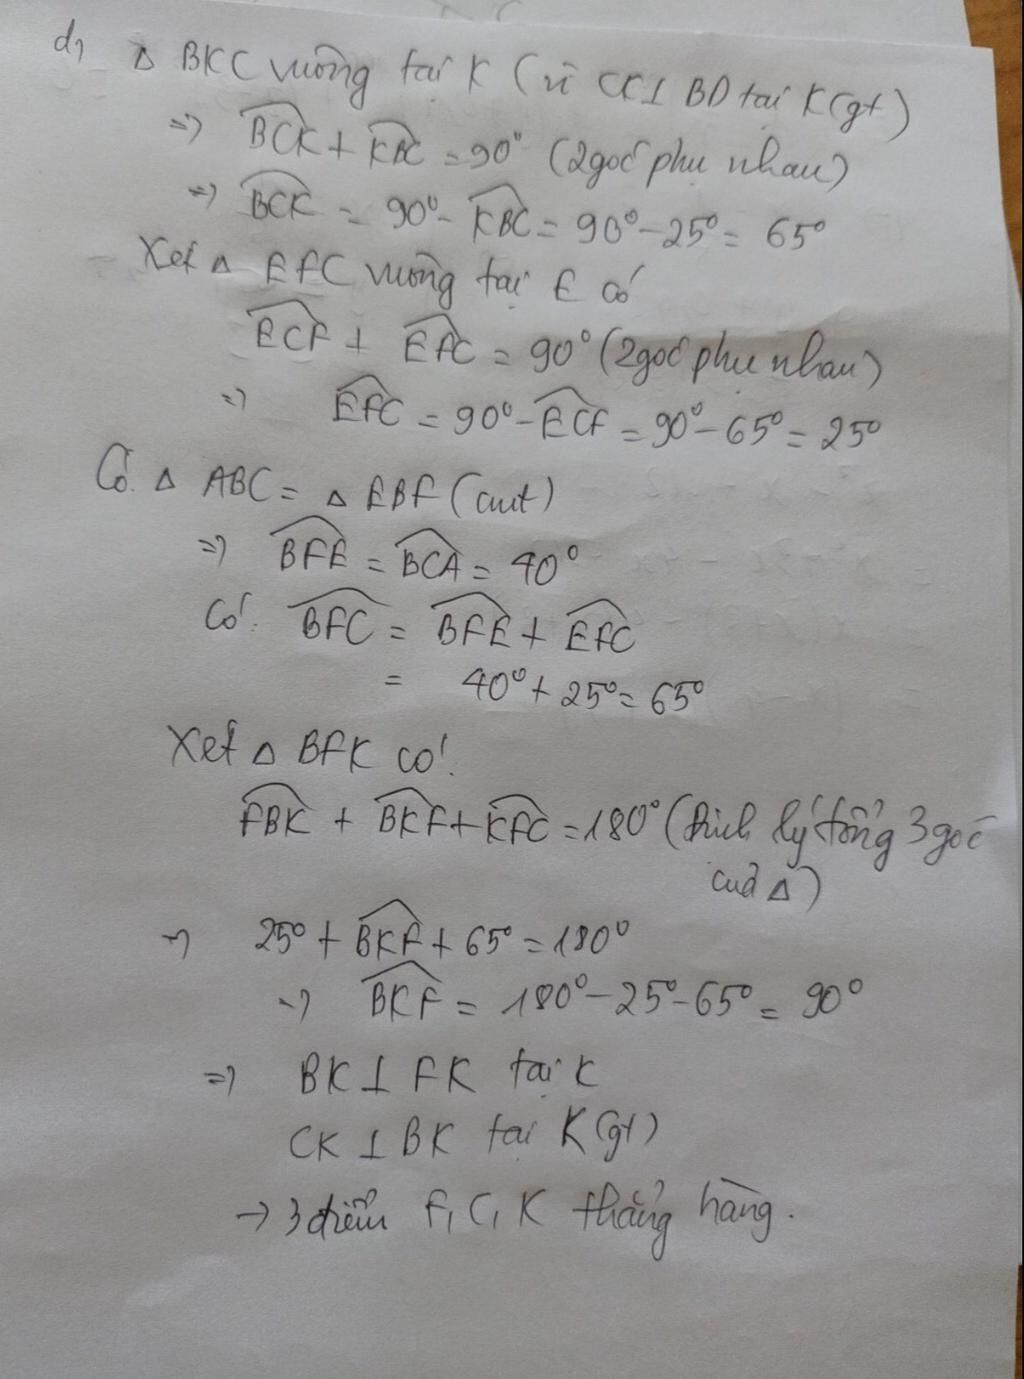 d, Δ BKC vuông tại K (vì CK⊥ BD tại K(gt)
=> BCK + KBC = 90° (2góc phụ nhau)
=> BCK = 90° - KBC = 90° - 25° = 65°
Xét Δ EFC vuông tại E có
ECF + EFC = 90° (2góc phụ nhau)
=> EFC = 90° - ECF = 90° - 65° = 25°
Có Δ ABC = Δ EBF (cmt)
=> BFE = BCA = 40°
Có: BFC = BFE + EFC
= 40° + 25° = 65°
Xét Δ BFK có:
FBK + BKF + KFC = 180° (định lý tổng 3 góc
của Δ)
=> 25° + BKF + 65° = 180°
=> BKF = 180° - 25° - 65° = 90°
=> BK ⊥ FK tại K
CK ⊥ BK tại K (gt)
-> 3 điểm F, C, K thẳng hàng.